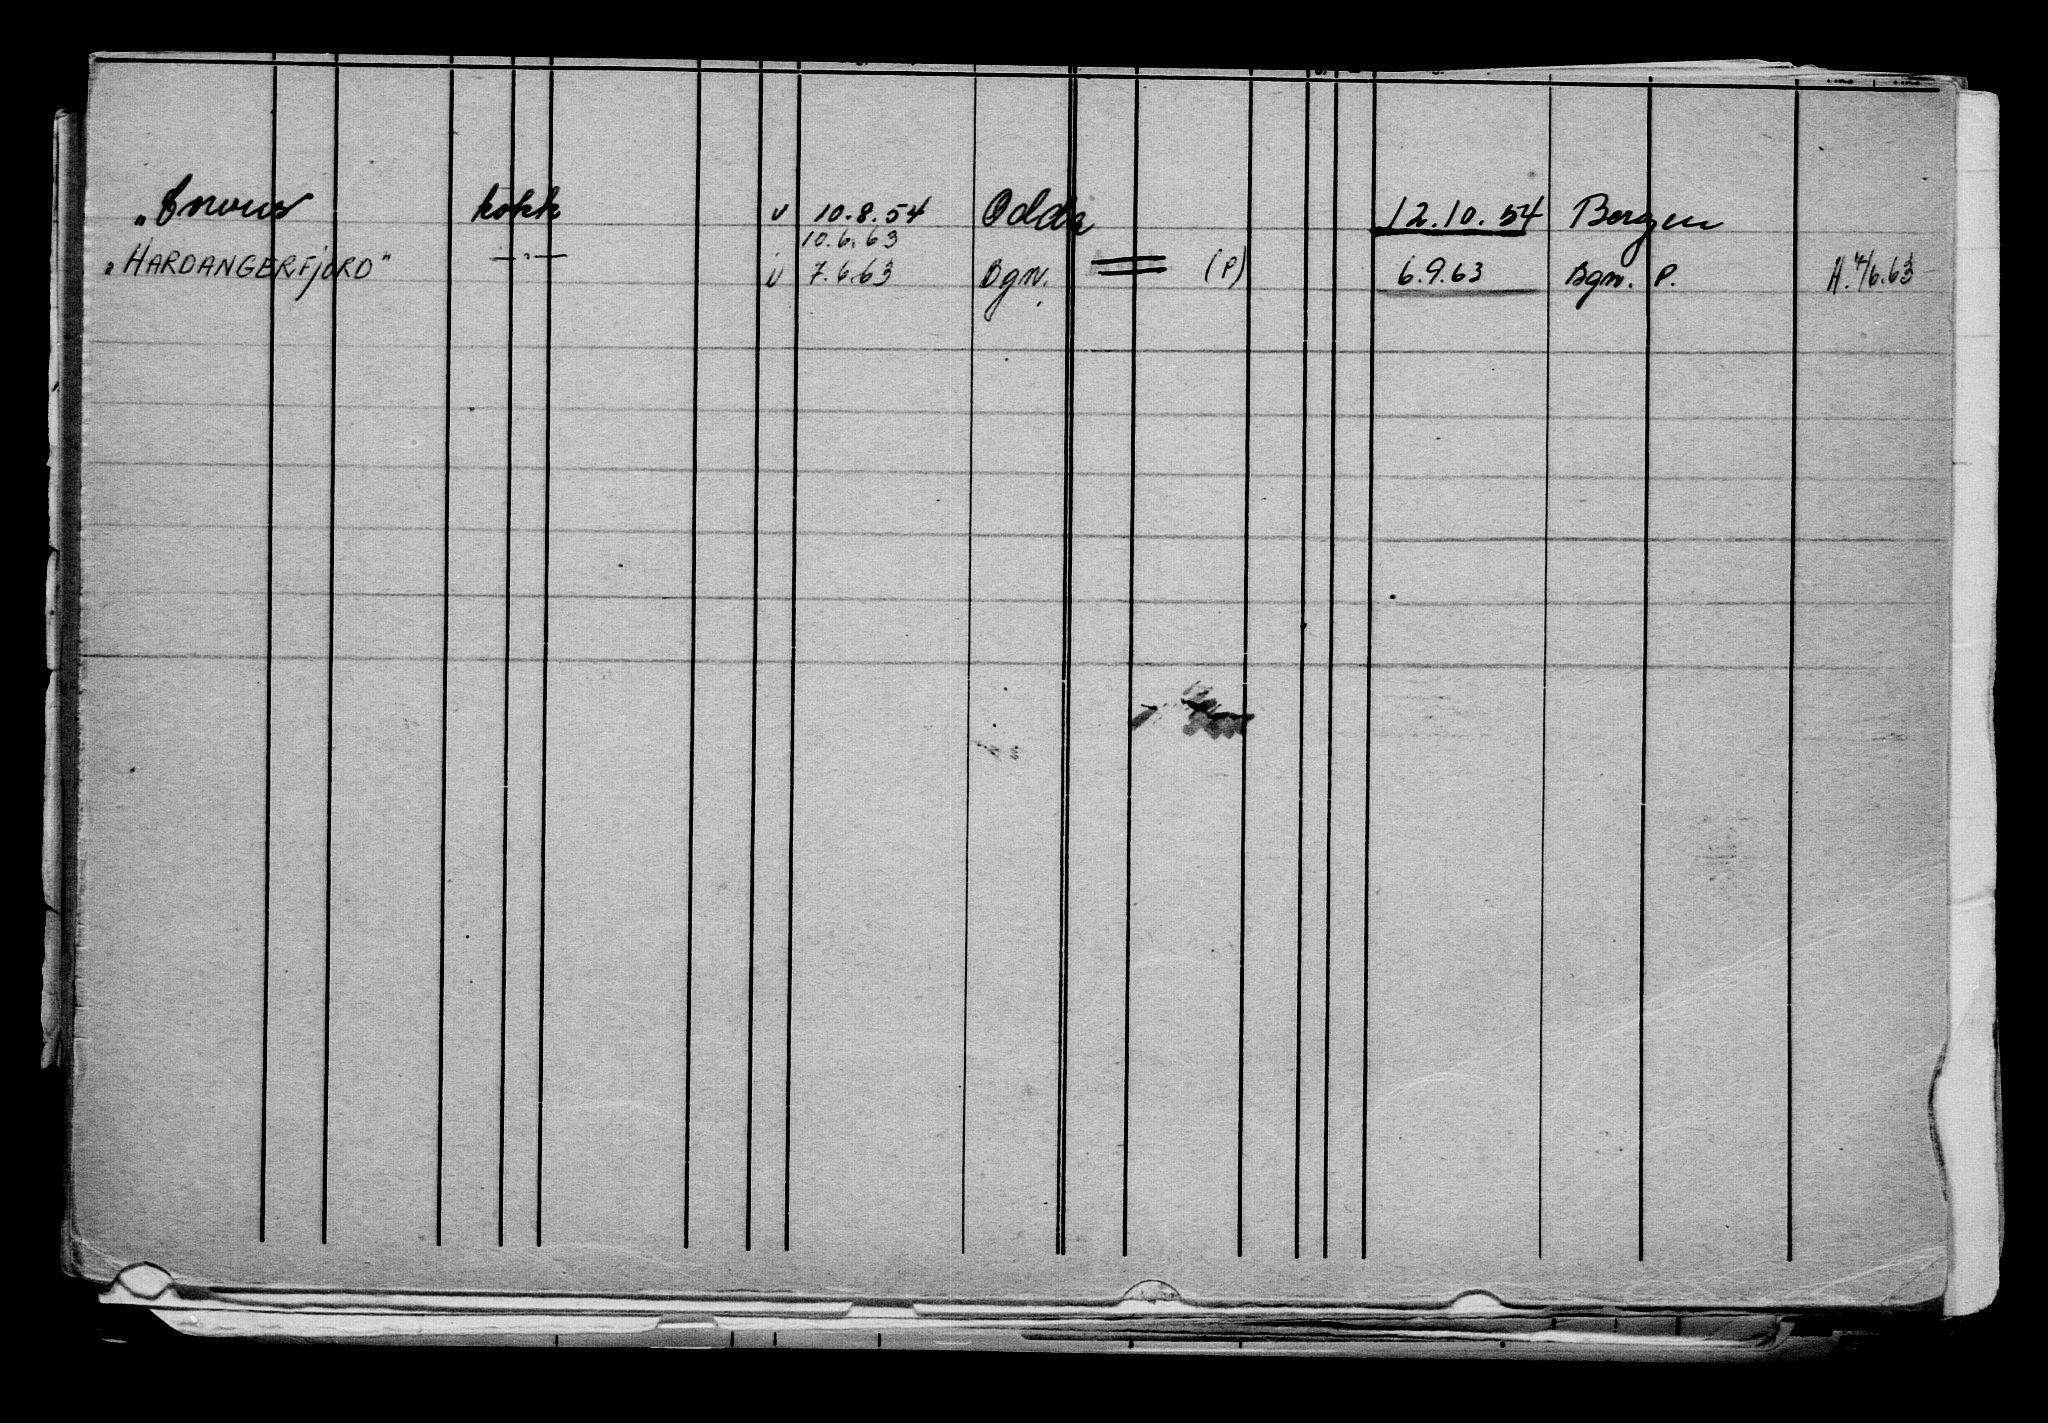 kokk v 10.8.54 Odda 12.10.54 Bergen
10.6.63
"HARDANGERFJORD" —"— v 7.6.63 Bgn. (P) 6.9.63 Bgn. P. H. 4/6.63